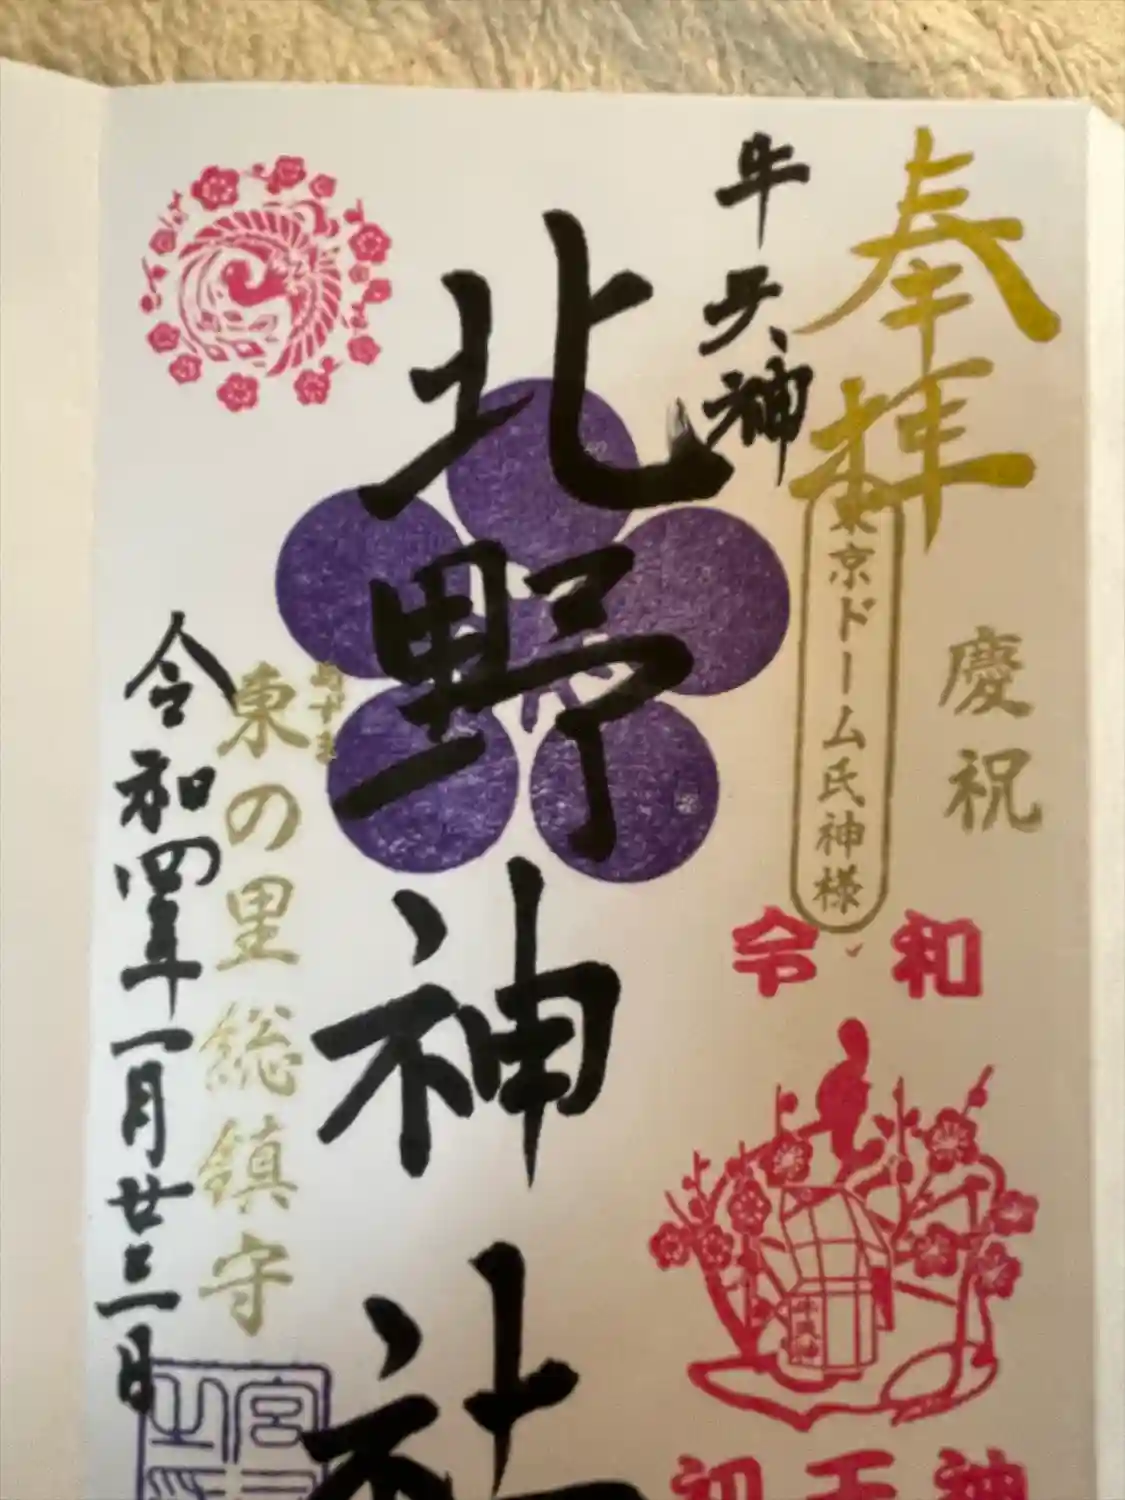 奉拝
慶祝
東京ドーム氏神様
令和
初天神
牛天神
北野神社
東の里総鎮守
令和四年一月廿三日
牛天神
宮